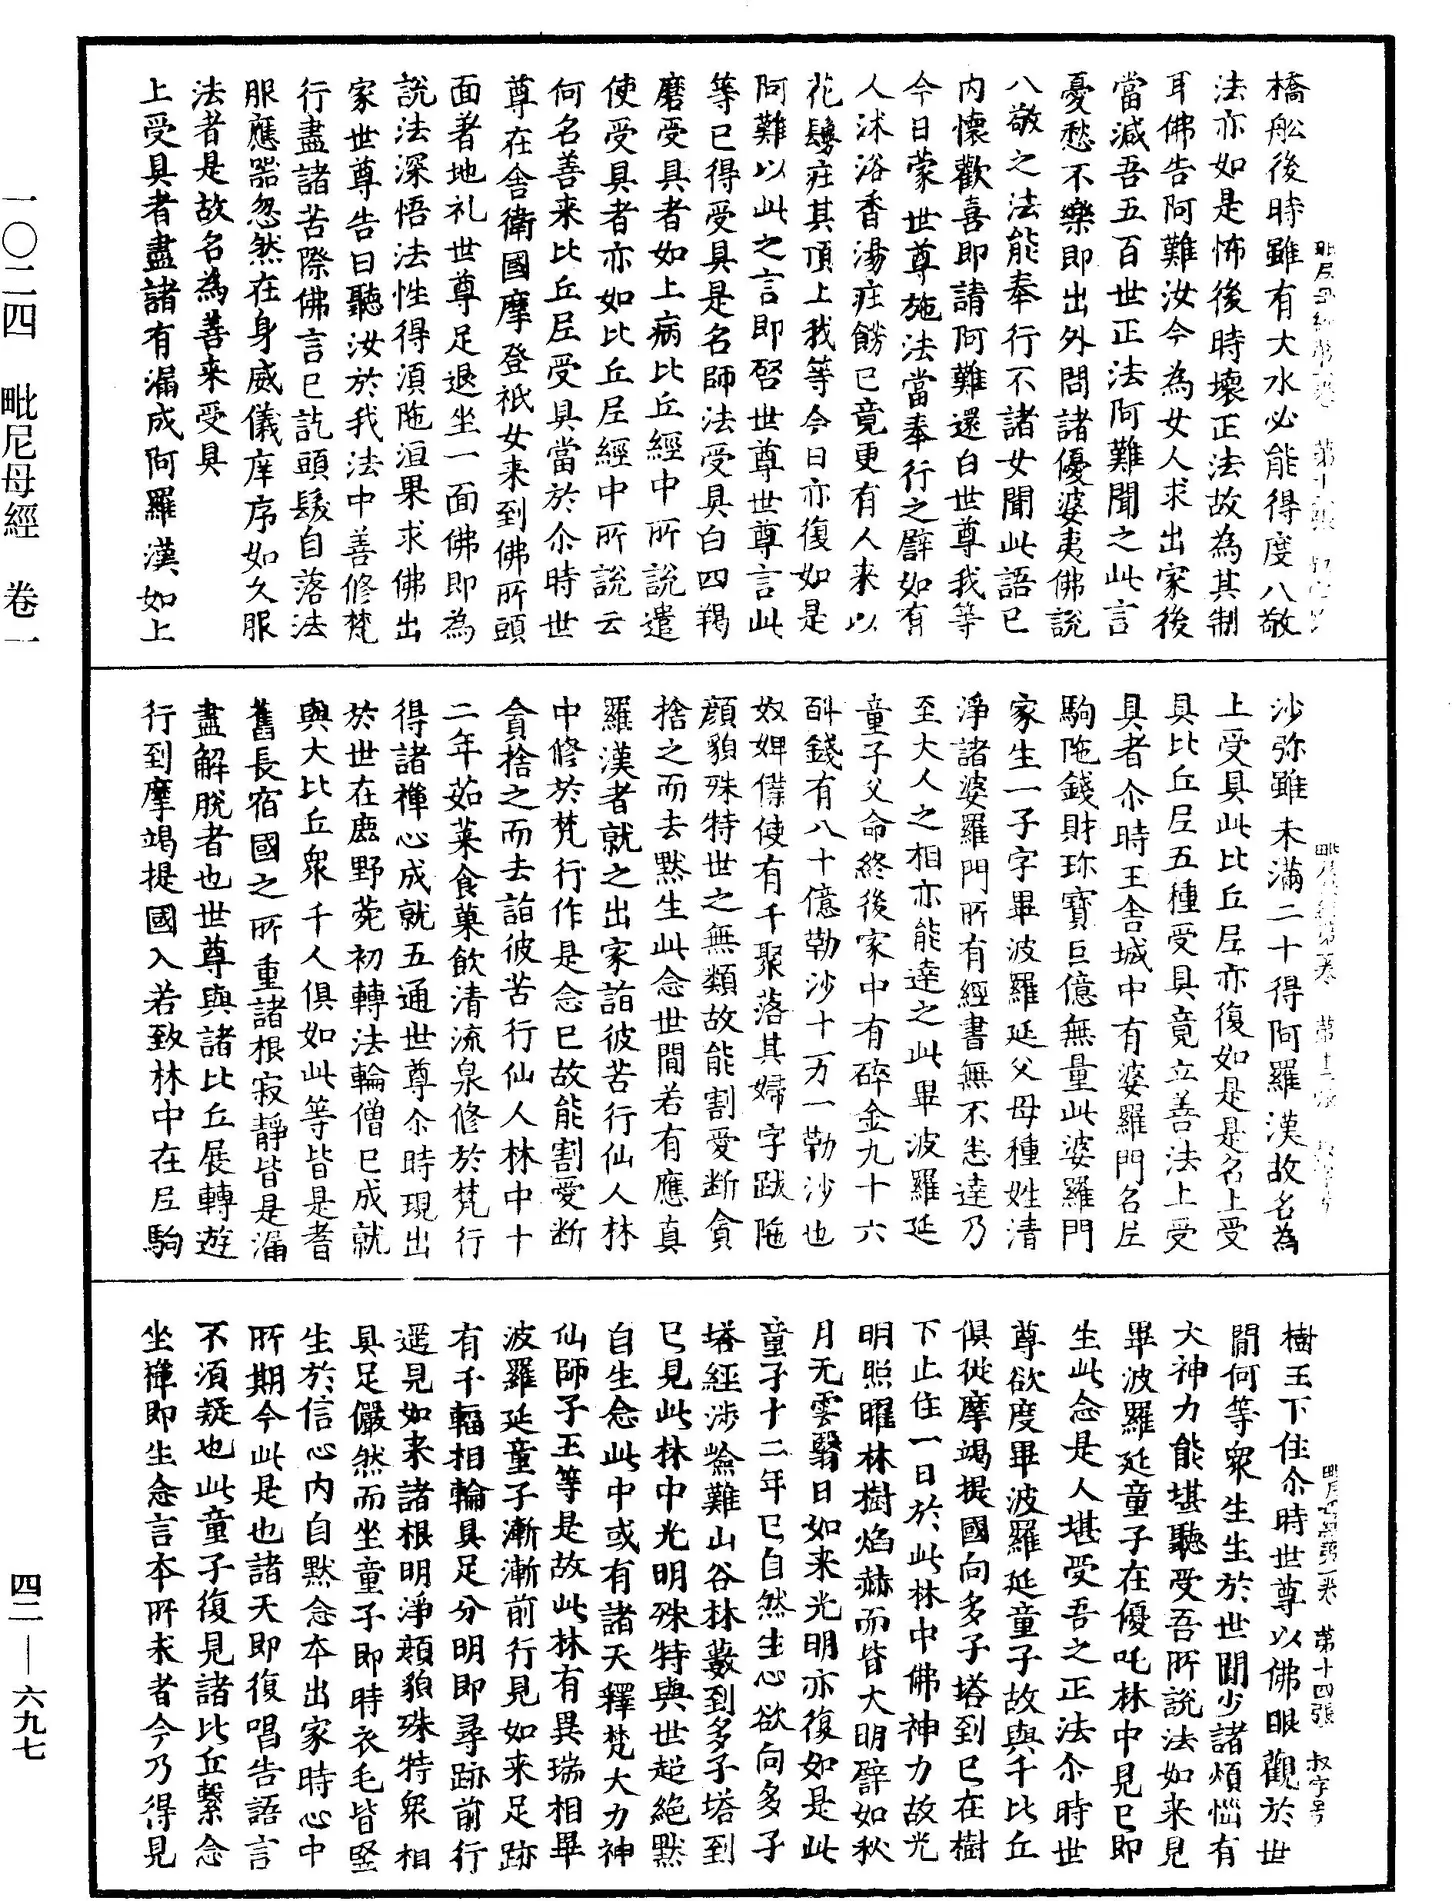 橋舩後時雖有大水必能得度八敬
法亦如是怖後時壞正法故為其制
耳佛告阿難汝今為女人求出家後
當減吾五百世正法阿難聞之此言
憂愁不樂即出外問諸優婆夷佛說
八敬之法能奉行不諸女聞此語已
内懷歡喜即請阿難還白世尊我等
今日蒙世尊施法當奉行之譬如有
人沐浴香湯疘餝已竟更有人来以
花鬘疘其頂上我等今日亦復如是
阿難以此之言即啓世尊世尊言此
等已得受具是名師法受具白四羯
磨受具者如上病比丘經中所說遣
使受具者亦如比丘尼經中所說云
何名善来比丘尼受具當於尒時世
尊在舍衛國摩登祇女来到佛所頭
面著地礼世尊足退坐一面佛即為
説法深悟法性得湏陁洹果求佛出
家世尊告曰聽汝於我法中善修梵
行盡諸苦際佛言已訖頭鬚自落法
服應器忽然在身威儀庠序如久服
法者是故名為善来受具
上受具者盡諸有漏成阿羅漢如上
沙弥雖未滿二十得阿羅漢故名為
上受具此比丘尼亦復如是是名上受
具比丘尼五種受具竟立善法上受
具者尒時王舍城中有婆羅門名尼
駒陁錢財珎寶巨億無量此婆羅門
家生一子字畢波羅延父母種姓清
淨諸婆羅門所有經書無不悉達乃
至大人之相亦能達之此畢波羅延
童子父命終後家中有碎金九十六
㪷錢有八十億勒沙十万一勒沙也
奴婢僕使有千聚落其婦字跋陁
顔貌殊特世之無類故能割愛断貪
捨之而去黙生此念世間若有應真
羅漢者就之出家詣彼苦行仙人林
中修於梵行作是念已故能割愛断
貪捨之而去詣彼苦行仙人林中十
二年茹菜食菓飲清流泉修於梵行
得諸禪心成就五通世尊尒時現出
於世在鹿野苑初轉法輪僧已成就
與大比丘衆千人俱如此等皆是耆
舊長宿國之所重諸根寂靜皆是漏
盡解脫者也世尊與諸比丘展轉遊
行到摩竭提國入若致林中在尼駒
樹王下住尒時世尊以佛眼觀於世
間何等衆生生於世間少諸煩惱有
大神力能堪聽受吾所說法如来見
畢波羅延童子在優吒林中見已即
生此念是人堪受吾之正法尒時世
尊欲度畢波羅延童子故與千比丘
俱從摩竭提國向多子塔到已在樹
下止住一日於此林中佛神力故光
明照曜林樹焰赫而皆大明譬如秋
月无雲翳日如来光明亦復如是此
童子十二年已自然生心欲向多子
塔經涉嶮難山谷林藪到多子塔到
已見此林中光明殊特與世超絶黙
自生念此中或有諸天釋梵大力神
仙師子王等是故此林有異瑞相畢
波羅延童子漸漸前行見如来足跡
有千輻相輪具足分明即尋跡前行
遥見如来諸根明淨顔貌殊特衆相
具足儼然而坐童子即時衣毛皆竪
生於信心内自黙念本出家時心中
所期今此是也諸天即復唱告語言
不須疑也此童子復見諸比丘繫念
坐禪即生念言本所求者今乃得見
毗尼母經第一卷 第十四張 叔字号
一〇二四 毗尼母經 卷一
四二—六九七